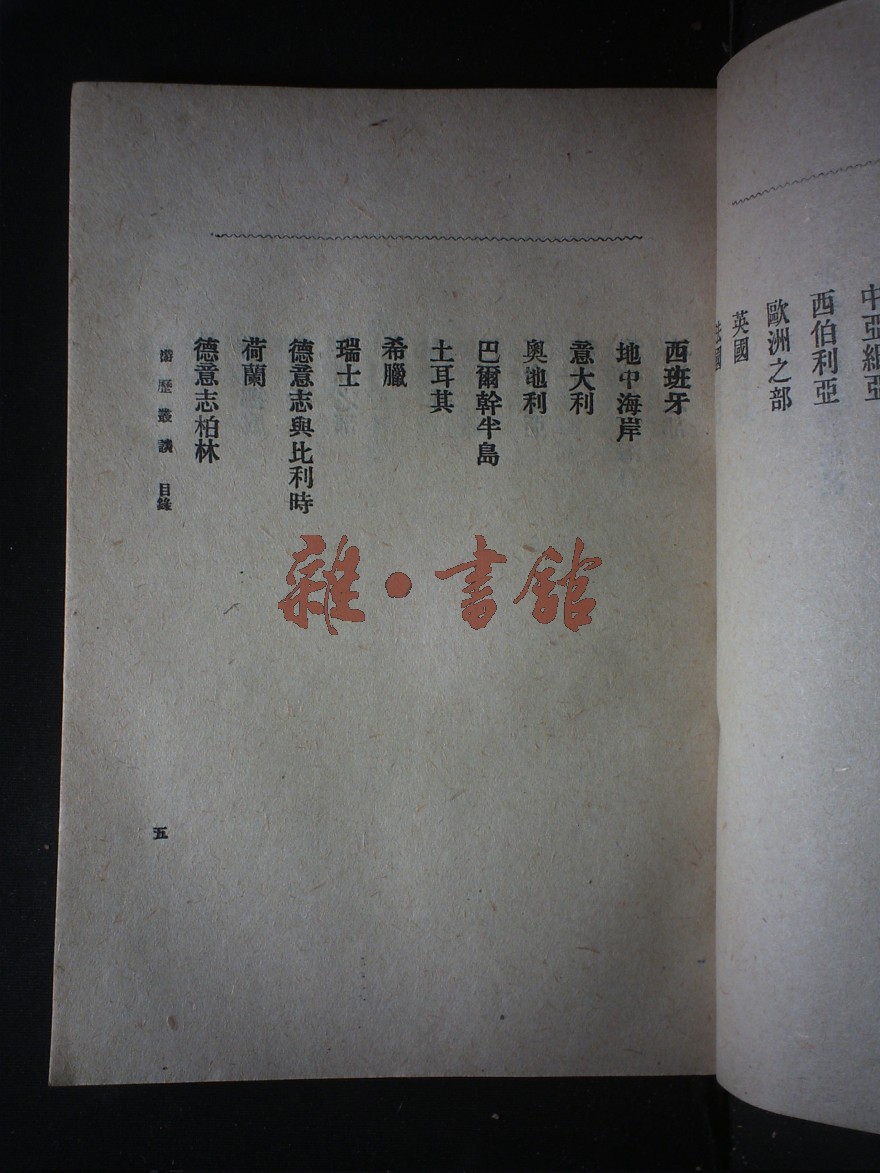 中亞細亞
西伯利亞
歐洲之部
英國
法國
西班牙
地中海岸
意大利
奧地利
巴爾幹半島
土耳其
希臘
瑞士
德意志與比利時
荷蘭
德意志柏林
游歷叢談 目錄
五
雜·書館